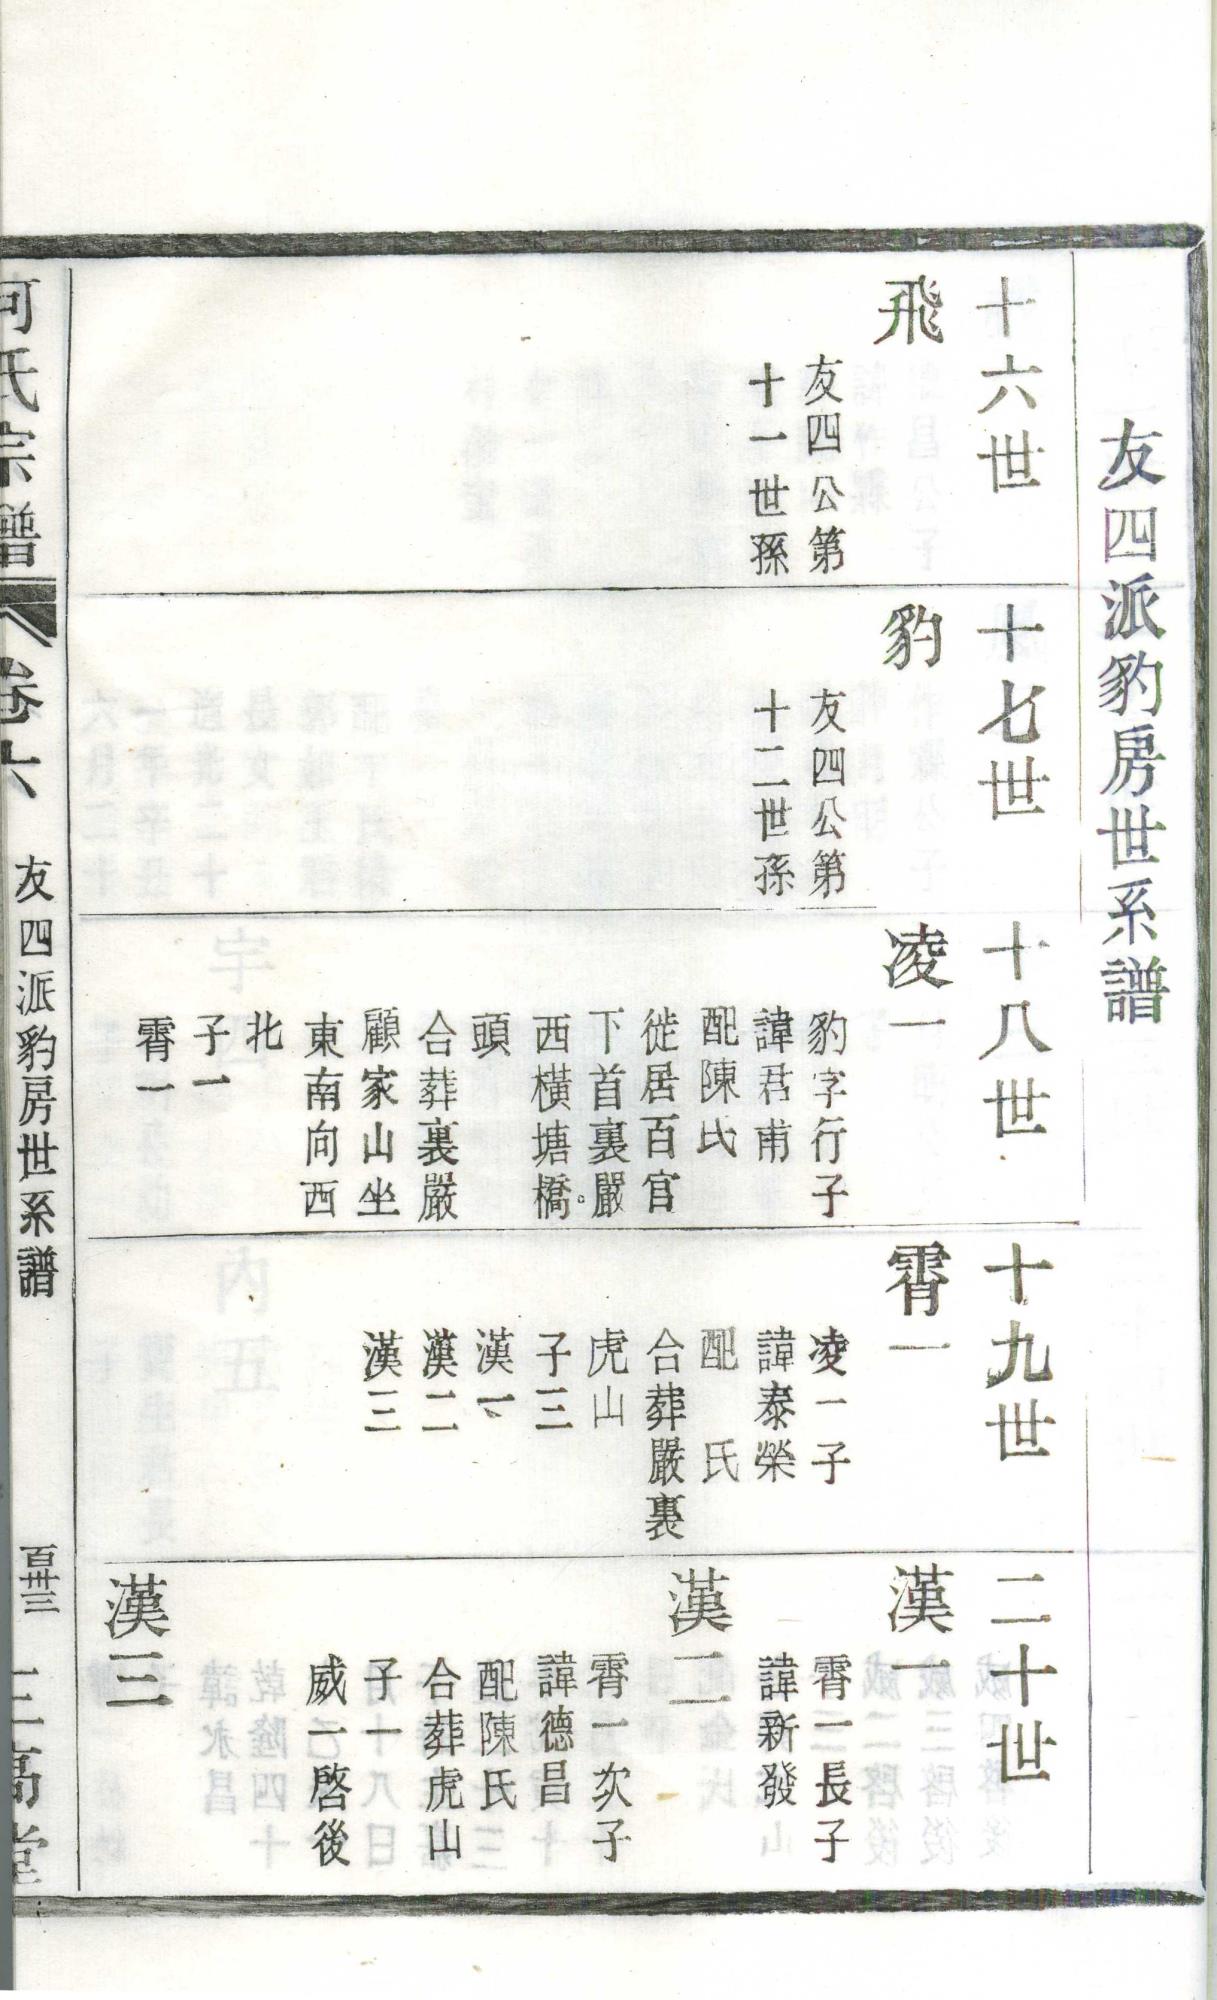 友四派豹房世系譜
十六世
飛
友四公第
十一世孫
十七世
豹
友四公第
十二世孫
十八世
凌一
豹字行子
諱君甫
配陳氏
徙居百官
下首裏嚴
西橫塘橋
頭
合葬裏嚴
顧家山坐
東南向西
北
子一
霄一
十九世
霄一
凌一子
諱泰榮
配 氏
合葬嚴裏
虎山
子三
漢一
漢二
漢三
二十世
漢一
霄一長子
諱新發
漢二
霄一次子
諱德昌
配陳氏
合葬虎山
子一
威一啓後
漢三
何氏宗譜
卷六
友四派豹房世系譜
百卌三